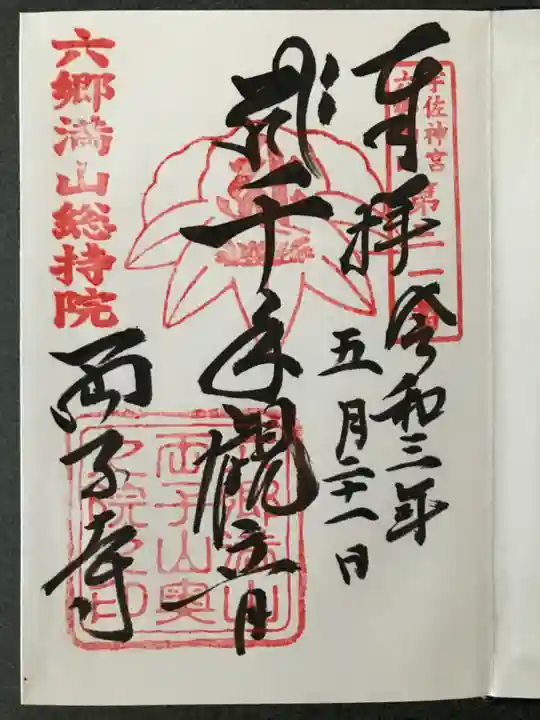 奉拝
令和三年
五月二十一日
千手観音
両子寺
六郷満山総持院
宇佐神宮
六郷満山
両子山奥
之院之印